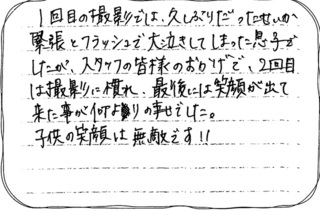 1回目の撮影では、久しぶりだったせいか
緊張とフラッシュで大泣きしてしまった息子でし
たが、スタッフの皆様のおかげで、2回目
は撮影に慣れ、最後には笑顔が出て
来た事が何よりの幸せでした。
子供の笑顔は無敵です!!